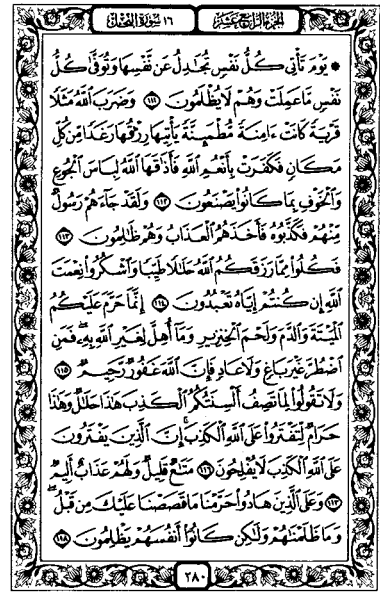 الجزء الرابع عشر
١٦ سورة النحل
* يَوْمَ تَأْتِي كُلُّ نَفْسٍ تُجَادِلُ عَن نَّفْسِهَا وَتُوَفَّىٰ كُلُّ
نَفْسٍ مَّا عَمِلَتْ وَهُمْ لَا يُظْلَمُونَ ١١١ وَضَرَبَ ٱللَّهُ مَثَلًا
قَرْيَةً كَانَتْ ءَامِنَةً مُّطْمَئِنَّةً يَأْتِيهَا رِزْقُهَا رَغَدًا مِّن كُلِّ
مَكَانٍ فَكَفَرَتْ بِأَنْعُمِ ٱللَّهِ فَأَذَاقَهَا ٱللَّهُ لِبَاسَ ٱلْجُوعِ
وَٱلْخَوْفِ بِمَا كَانُوا۟ يَصْنَعُونَ ١١٢ وَلَقَدْ جَآءَهُمْ رَسُولٌ
مِّنْهُمْ فَكَذَّبُوهُ فَأَخَذَهُمُ ٱلْعَذَابُ وَهُمْ ظَٰلِمُونَ ١١٣
فَكُلُوا۟ مِمَّا رَزَقَكُمُ ٱللَّهُ حَلَٰلًا طَيِّبًا وَٱشْكُرُوا۟ نِعْمَتَ
ٱللَّهِ إِن كُنتُمْ إِيَّاهُ تَعْبُدُونَ ١١٤ إِنَّمَا حَرَّمَ عَلَيْكُمُ
ٱلْمَيْتَةَ وَٱلدَّمَ وَلَحْمَ ٱلْخِنزِيرِ وَمَآ أُهِلَّ لِغَيْرِ ٱللَّهِ بِهِۦ ۖ فَمَنِ
ٱضْطُرَّ غَيْرَ بَاغٍ وَلَا عَادٍ فَإِنَّ ٱللَّهَ غَفُورٌ رَّحِيمٌ ١١٥
وَلَا تَقُولُوا۟ لِمَا تَصِفُ أَلْسِنَتُكُمُ ٱلْكَذِبَ هَٰذَا حَلَٰلٌ وَهَٰذَا
حَرَامٌ لِّتَفْتَرُوا۟ عَلَى ٱللَّهِ ٱلْكَذِبَ ۚ إِنَّ ٱلَّذِينَ يَفْتَرُونَ
عَلَى ٱللَّهِ ٱلْكَذِبَ لَا يُفْلِحُونَ ١١٦ مَتَٰعٌ قَلِيلٌ وَلَهُمْ عَذَابٌ أَلِيمٌ
١١٧ وَعَلَى ٱلَّذِينَ هَادُوا۟ حَرَّمْنَا مَا قَصَصْنَا عَلَيْكَ مِن قَبْلُ ۖ
وَمَا ظَلَمْنَٰهُمْ وَلَٰكِن كَانُوٓا۟ أَنفُسَهُمْ يَظْلِمُونَ ١١٨
٢٨٠